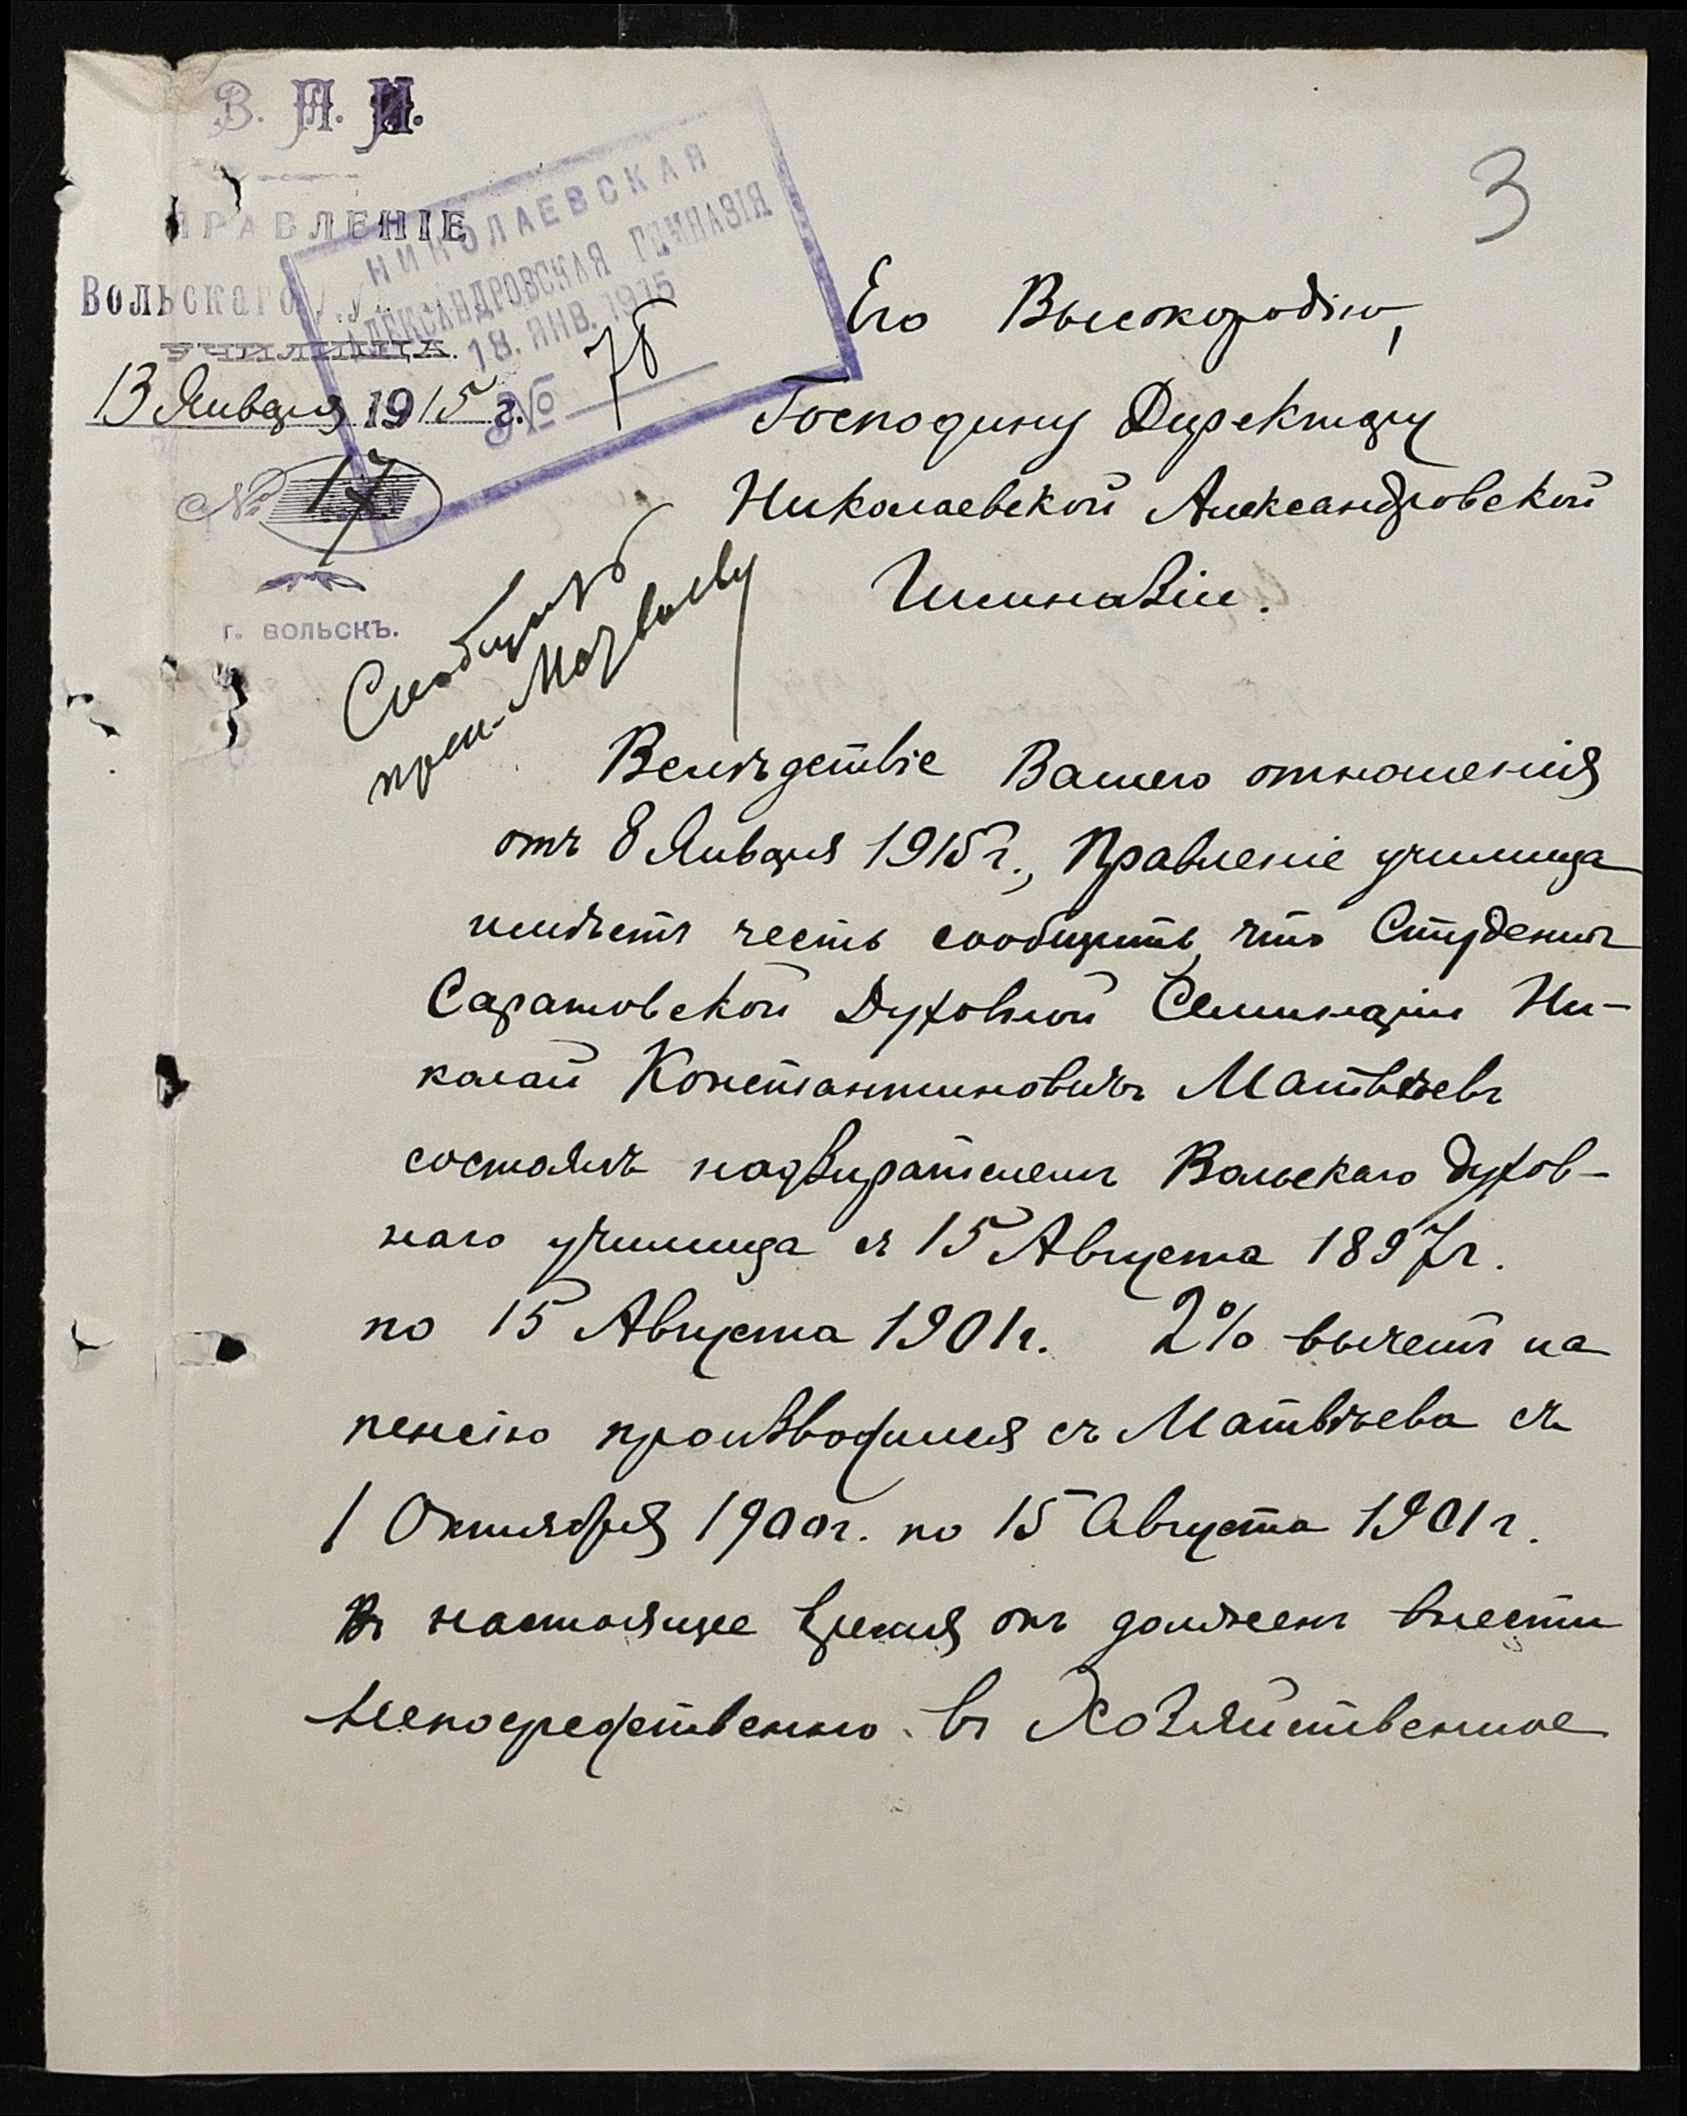 В. П. И.
ПРАВЛЕНІЕ
Вольскаго
УЧИЛИЩА.
13 Января 1915 г.
№ 17
г. ВОЛЬСКЪ.
НИКОЛАЕВСКАЯ
АЛЕКСАНДРОВСКАЯ ГИМНАЗІЯ
18. ЯНВ. 1915
№ 78
3
Его Высокородію,
Господину Директору
Николаевской Александровской
Гимназіи.
Сообщить
Вслѣдствіе Вашего отношенія
отъ 8 Января 1915 г., Правленіе училища
имѣетъ честь сообщить, что Студентъ
Саратовской Духовной Семинаріи Ни-
колай Константиновичъ Матвѣевъ
состоялъ надзирателемъ Вольскаго Духов-
наго училища съ 15 Августа 1897 г.
по 15 Августа 1901 г. 2% вычетъ на
пенсію производился съ Матвѣева съ
1 Октября 1900 г. по 15 Августа 1901 г.
Въ настоящее время онъ долженъ внести
непосредственно въ Хозяйственное